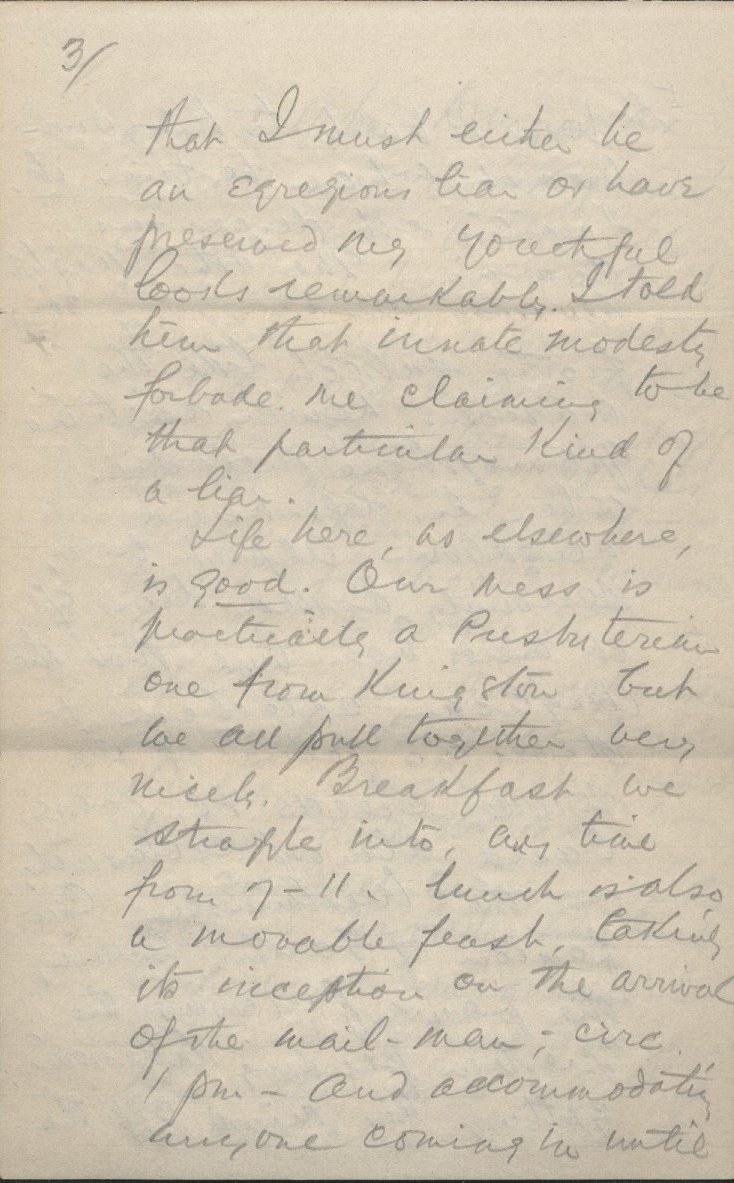 3/
that I must either be
an egregious liar or have
preserved my youthful
looks remarkably. I told
him that innate modesty
forbade me claiming to be
that particular kind of
a liar.
Life here, as elsewhere,
is good. Our mess is
practically a Presbyterian
one from Kingston but
we all pull together very
nicely. Breakfast we
straggle into, any time
from 7-11. Lunch is also
a movable feast, taking
its inception on the arrival
of the mail-man; - circ.
1 pm - and accommodating
anyone coming in until